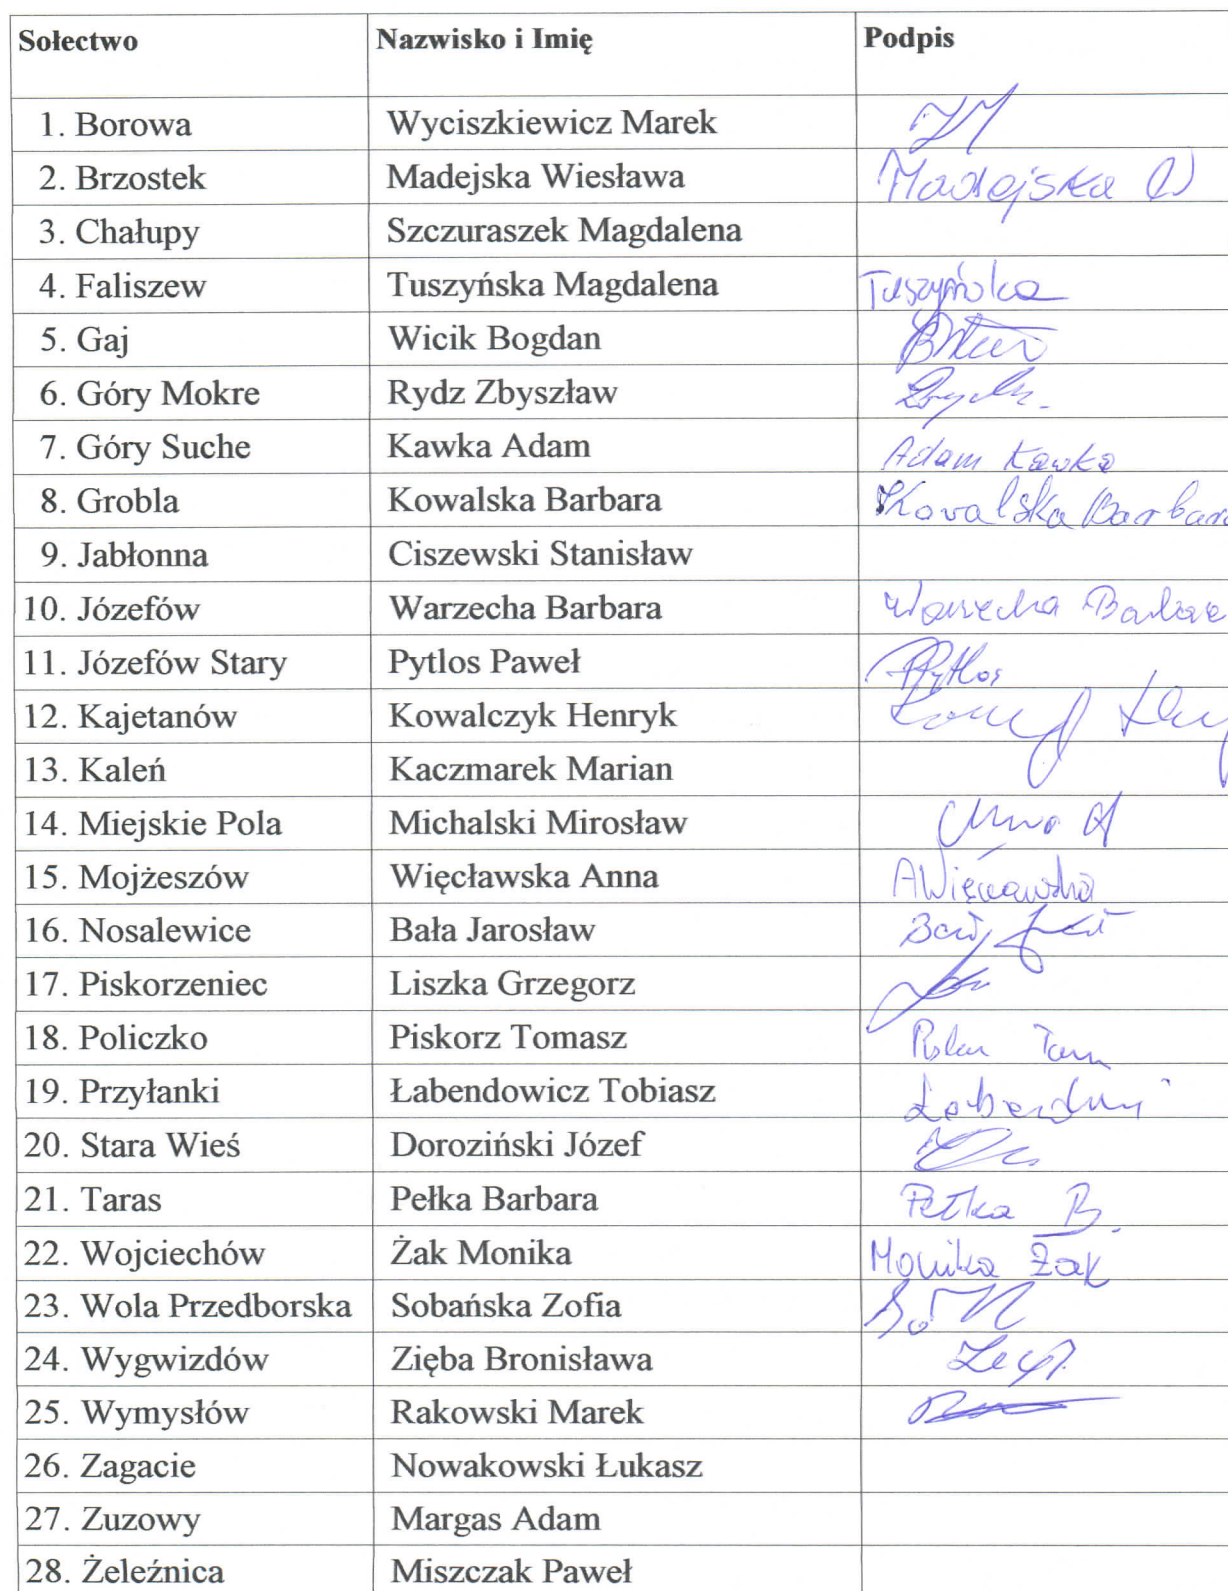 Sołectwo Nazwisko i Imię Podpis
1. Borowa Wyciszkiewicz Marek
2. Brzostek Madejska Wiesława Madejska W
3. Chałupy Szczuraszek Magdalena
4. Faliszew Tuszyńska Magdalena Tuszyńska
5. Gaj Wicik Bogdan
6. Góry Mokre Rydz Zbyszław
7. Góry Suche Kawka Adam Adam Kawka
8. Grobla Kowalska Barbara Kowalska Barbara
9. Jabłonna Ciszewski Stanisław
10. Józefów Warzecha Barbara Warzecha Barbara
11. Józefów Stary Pytlos Paweł PPytlos
12. Kajetanów Kowalczyk Henryk
13. Kaleń Kaczmarek Marian
14. Miejskie Pola Michalski Mirosław
15. Mojżeszów Więcławska Anna AWięcławska
16. Nosalewice Bała Jarosław
17. Piskorzeniec Liszka Grzegorz
18. Policzko Piskorz Tomasz
19. Przyłanki Łabendowicz Tobiasz
20. Stara Wieś Doroziński Józef
21. Taras Pełka Barbara Pełka B.
22. Wojciechów Żak Monika Monika Żak
23. Wola Przedborska Sobańska Zofia
24. Wygwizdów Zięba Bronisława
25. Wymysłów Rakowski Marek
26. Zagacie Nowakowski Łukasz
27. Zuzowy Margas Adam
28. Żeleźnica Miszczak Paweł